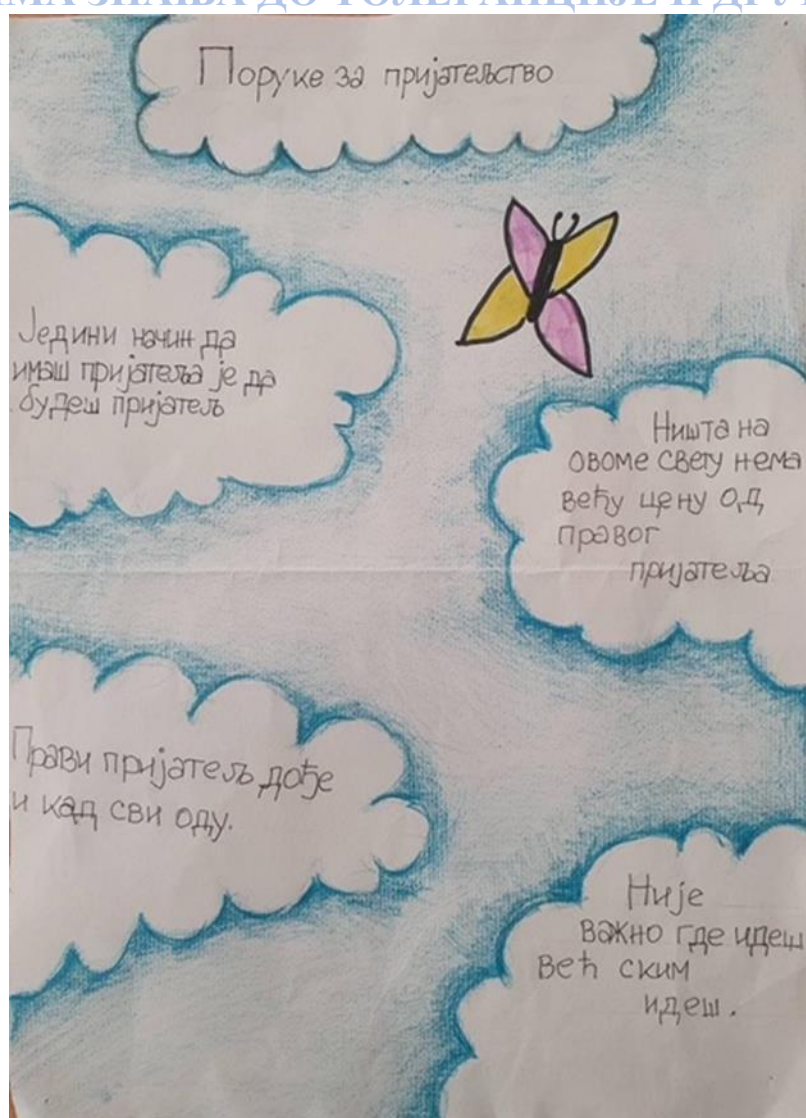 Поруке за пријатељство
Једини начин да
имаш пријатеља је да
будеш пријатељ
Ништа на
овоме свету нема
већу цену од
правог
пријатеља
Прави пријатељ дође
и кад сви оду.
Није
важно где идеш
већ ским
идеш.